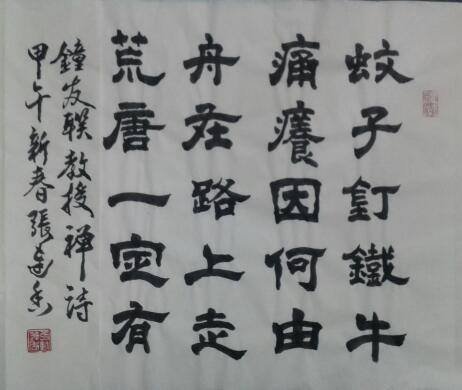 蚊子釘鐵牛
痛癢因何由
舟在路上走
荒唐一定有
鐘友聯教授禪詩
甲午新春張